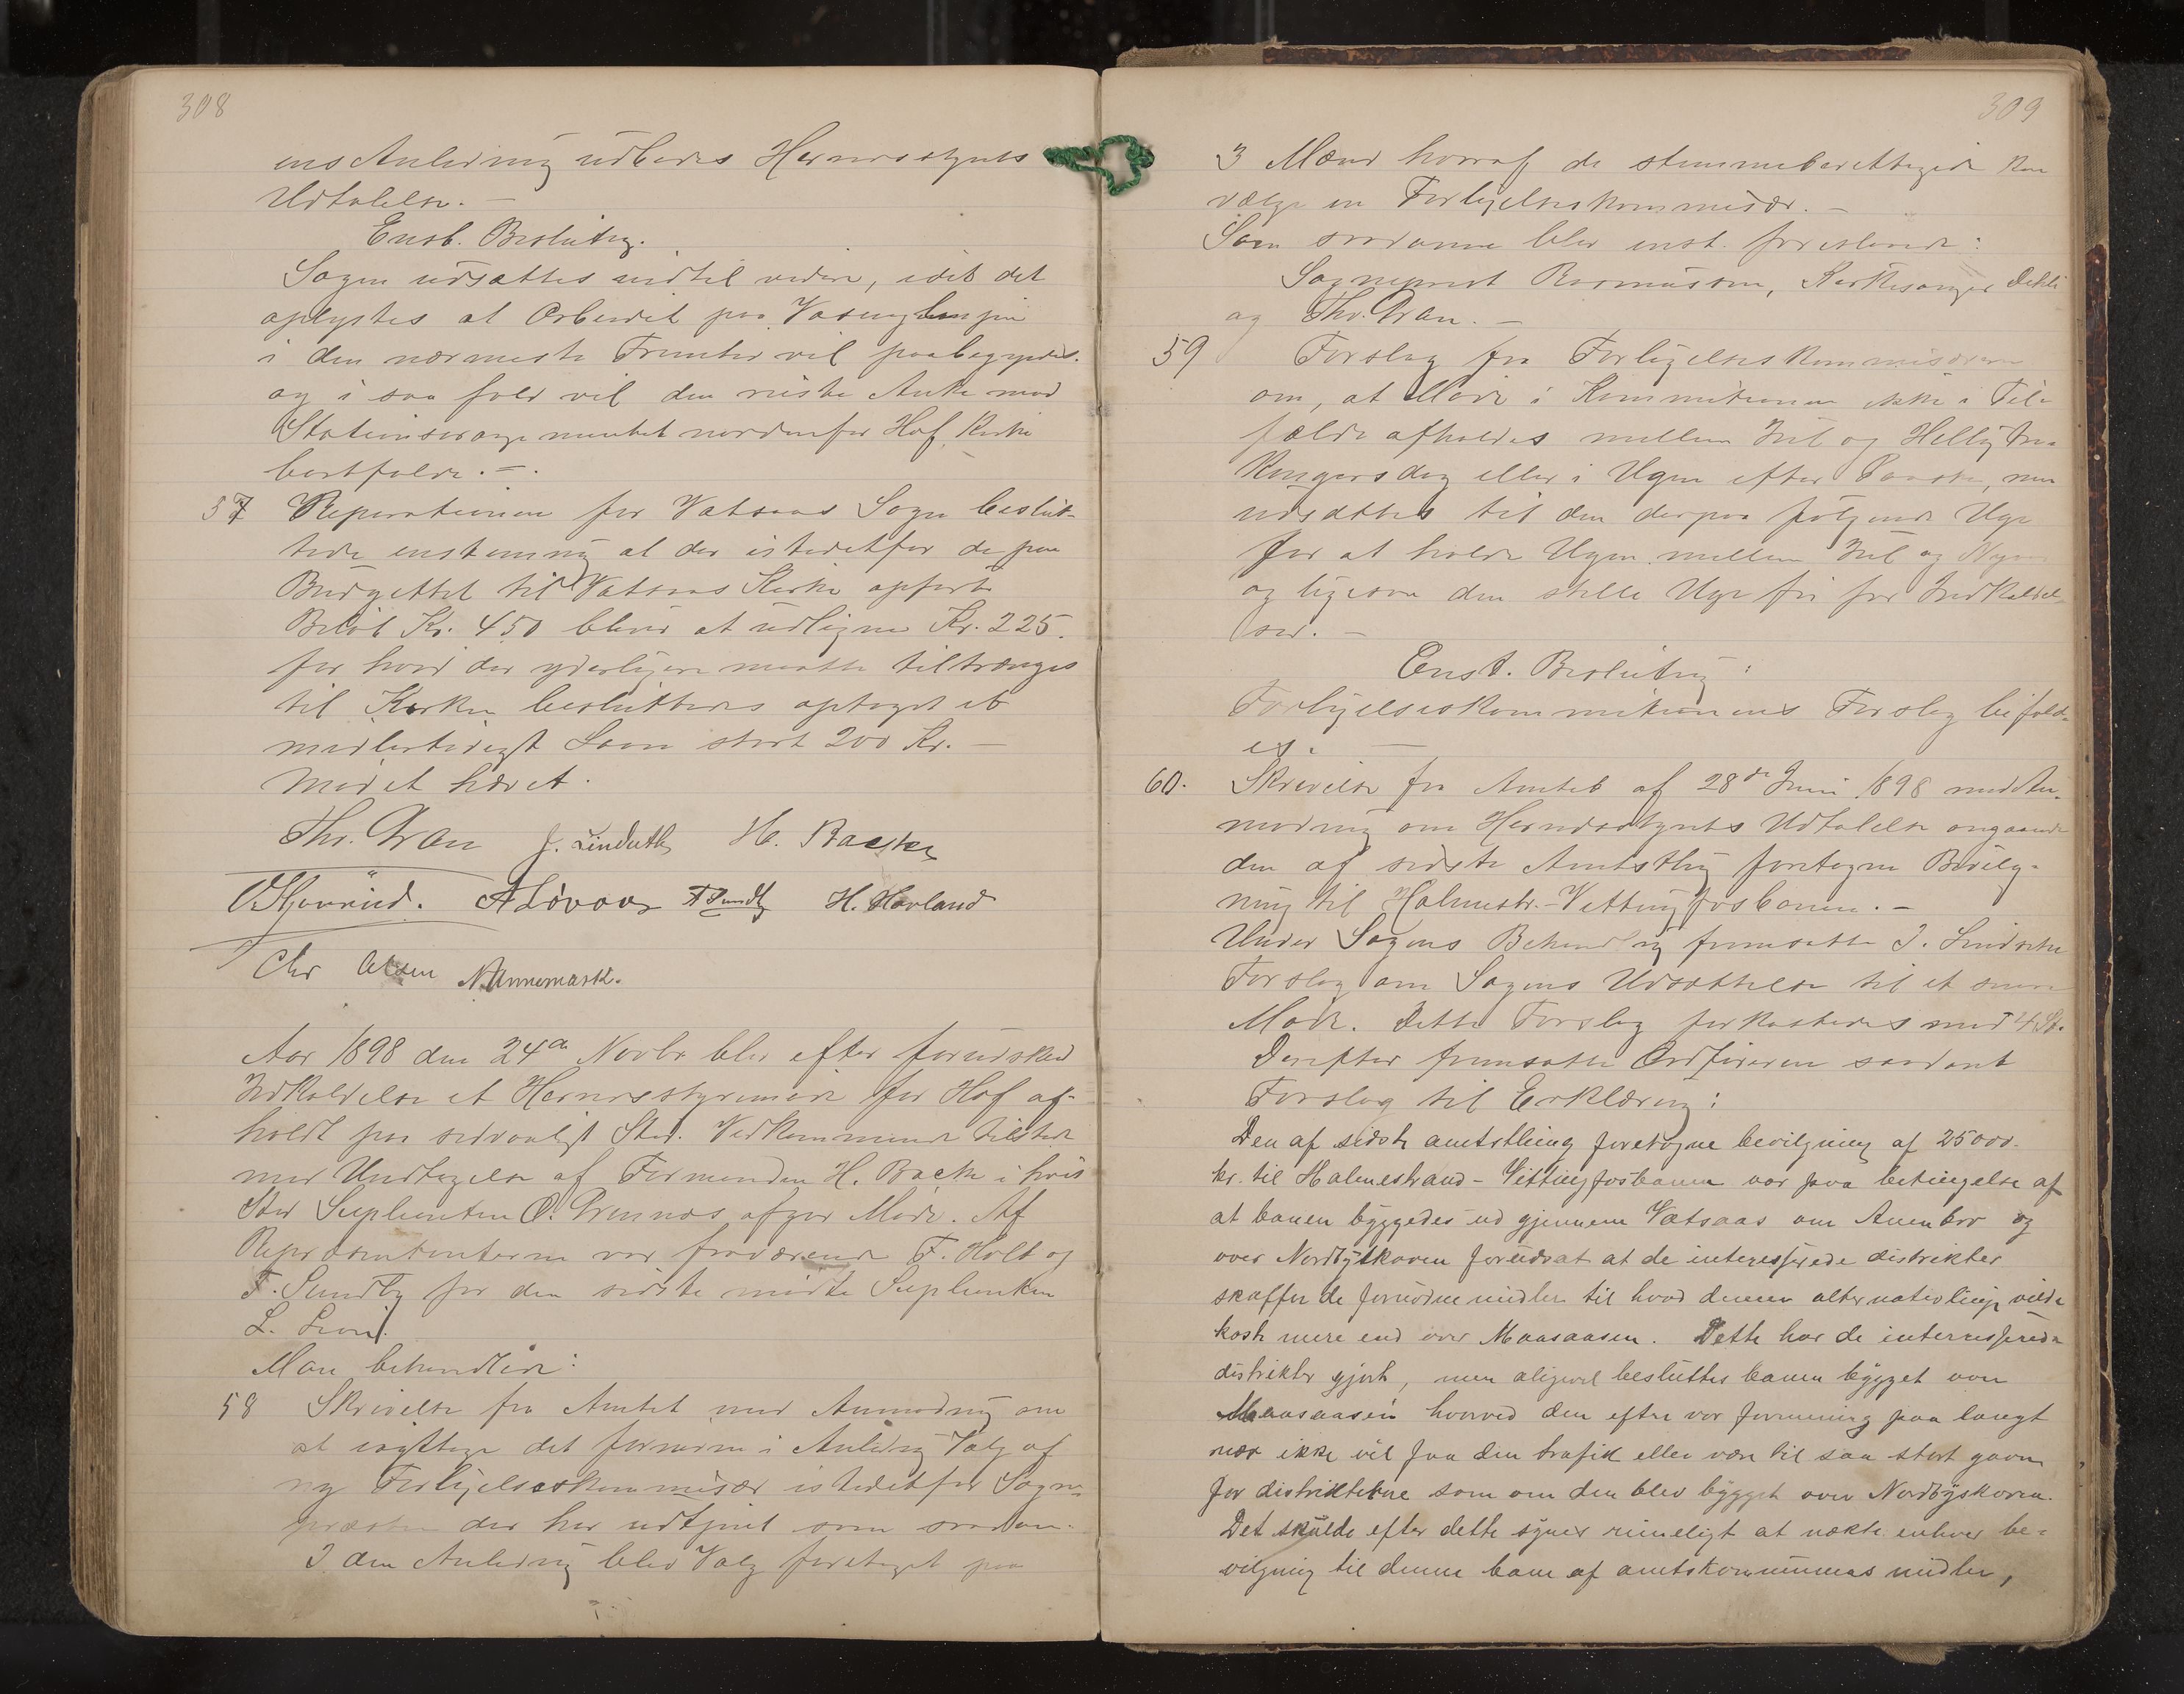 308
ens Anledning udbedes Herredsstyrets
Udtalelse. –
Enst. Beslutng.
Sagen udsættes indtil videre, idet det
oplystes at Arbeidet paa Vaseng
i den nærmeste Fremtid vil paabegyndes.
og i saa fald vil den neiste Anke mod
Stationsarrangementet nordenfor Hof Kirke
bortfalde. –.
57 Repræsentationen for Vatsaas Sogn beslut-
tede enstemmig at der istedetfor de paa
Budgettet til Vatsaas Kirke opførte
Beløb Kr. 450 bliver at udligne Kr. 225.
for hvad der yderligere maatte tiltrænges
til Kirken besluttedes optaget et
midlertidigt Laan stort 200 Kr. –
Mødet hævet.
Thv. Gran J. Lindseth H. Backe
A Løvaas F Sundby H. Havland
Chr Olsen N. Annemark.
Aar 1898 den 24de Novbr blev efter forudsked
Indkaldelse et Herredsstyremøde for Hof af-
holdt paa sedvanligt Sted. Vedkommende tilstede
med Undtagelse af Formanden H. Backe i hvis
Sted Suplianten O. Grennes afgav Møde. Af
Repræsentanterne var fraværende F. Holt og
F. Sundby for den sidste mødte Suplianten
L.
Man behandlede:
58 Skrivelse fra Amtet med Anmodning om
at iagttage det fornødne i Anledng Valg af
ny Forligelseskommisær istedetfor Sogne-
præsten der har udtjent som saadan.
I den Anledning blev Valg foretaget paa
309
3 Mænd hvoraf de stemmeberettigede kan
vælge en Forligelseskommisær. –
Som saadanne blev enst. foreslaaede:
Sogneprest Rasmussen, Kirkesanger Dehli
og Thv. Gran. –
59 Forslag fra Forligelseskommisærerne
om, at Møde i Kommisionen ikke i Til-
fælde afholdes mellem Jul og Hellig tre
Kongersdag eller i Ugen efter Paaske, men
udsættes til den derpaa følgende Uge
for at holde Ugen mellem Jul og Nyaar
og ligesaa den stille Uge fri for Indkaldel-
ser. –
Enst. Beslutng:
Forligelseskommisionens Forslag bifald-
es. –
60. Skrivelse fra Amtet af 28de Juni 1898 med An-
modning om Herredsstyrets Udtalelse angaaende
den af sidste Amtsthing foretagne Bevilg-
ning til Holmestr.-Vittingfosbanen. –
Under Sagens Behandling fremsatte J. Lindseth
Forslag om Sagens Udsættelse til et senere
Møde. Dette Forslag forkastedes med 4 St.
Derefter fremsatte Ordføreren saadant
Forslag til Erklæring:
Den af sidste amtsthing foretagne bevilgning af 25000.
kr. til Holmestrand-Vittingfosbanen var paa betingelse af
at banen byggedes ud gjennem Vatsaas om Auenbro og
over Nordbyskoven forudsat at de interesserede distrikter
skaffer de fornødne midler til hvad denne alternativlinje vilde
koste mere end over Maasaasen. Dette har de interresserede
distrikter gjort, men aligevel besluttes banen bygget over
Maasaasen hvorved den efter vor formening paa langt
nær ikke vil faa den trafik eller være til saa stort gavn
for distrikterne som om den blev bygget over Nordbyskoven.
Det skulde efter dette synes rimeligt at nekte enhver be-
vilgning til denne bane af amtskommunens midler,